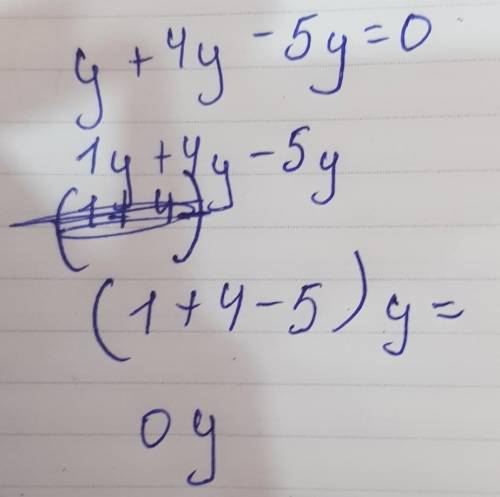 y + 4y - 5y = 0
1y + 4y - 5y
(1 + 4)y
(1 + 4 - 5) y =
0y